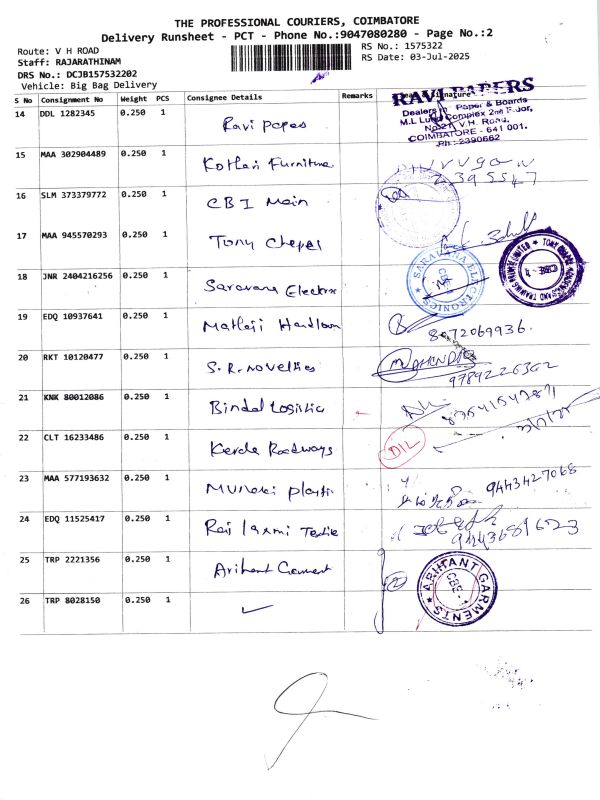 THE PROFESSIONAL COURIERS, COIMBATORE
Delivery Runsheet - PCT - Phone No.:9047080280 - Page No.:2
Route: V H ROAD
RS No.: 1575322
Staff: RAJARATHINAM
RS Date: 03-Jul-2025
DRS No.: DCJB157532202
Vehicle: Big Bag Delivery
S No Consignment No Weight PCS Consignee Details Remarks Signature
RAVI PAPERS
Dealers in Paper & Boards
M.L Complex 2nd Floor,
V.H. Road,
COIMBATORE - 641 001.
Ph : 2390662
14 DDL 1282345 0.250 1 Ravi papes
15 MAA 302904489 0.250 1 Kothari Furniture
2395547
16 SLM 373379772 0.250 1 CBI Main
17 MAA 945570293 0.250 1 Tony Chepel
18 JNR 2404216256 0.250 1 Saravana Electro
SARAVANA ELECTRONICS
CBE
19 EDQ 10937641 0.250 1 Matlaji Handloom
8072069936.
20 RKT 10120477 0.250 1 S.R. novelties
MAHENDRA
9789226362
21 KNK 80012086 0.250 1 Bindal Logistic
8754154787
22 CLT 16233486 0.250 1 Kerala Roadways
DIL
23 MAA 577193632 0.250 1 Munaki plasti
9443427068
24 EDQ 11525417 0.250 1 Raj laxmi Textile
9443681623
25 TRP 2221356 0.250 1 Arihant Garment
2
ARIHANT GARMENTS
CBE-1
26 TRP 8028150 0.250 1